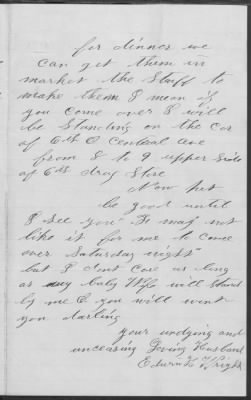 for dinner we
can get them in
market the Stuff to
make them I mean if
you come over I will
be Standing on the Cor
of 6th & Central Ave
from 8 to 9 upper side
of 6th drug Store
Now pet
be good until
I see you "F. may not
like it for me to come
over Saturday night"
but I dont care as long
as my baby Wife will stand
by me & you will wont
you darling
your undying and
unceasing Loving Husband
Wright